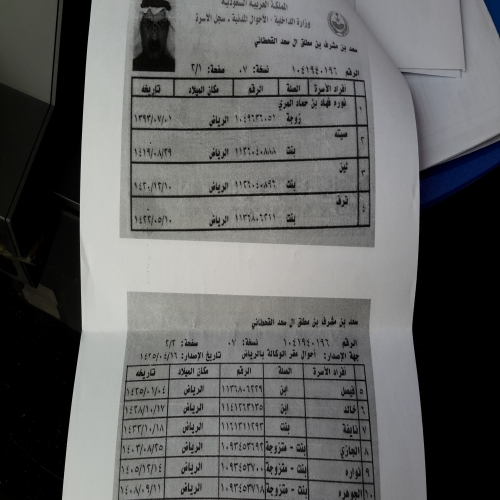 المملكة العربية السعودية
وزارة الداخلية - الأحوال المدنية - سجل الأسرة
سعد بن مشرف بن مطلق ال سعد القحطاني
الرقم ١٠٤١٩٤٠١٩٦ نسخة: ٠٧ صفحة: ٢/١
أفراد الأسرة الصلة الرقم مكان الميلاد تاريخه
١ نوره فهاد بن حماد المري
زوجة ١٠٤٩٦٣٦٠٥٦ الرياض ١٣٩٣/٠٧/٠١
٢
بنت ١١٣٦٠٤٠٨٨٨ الرياض ١٤١٩/٠٨/٢٩
٣ لين
بنت ١١٣٦٠٤٠٨٩٦ الرياض ١٤٢٠/١٢/١٠
٤ ترف
بنت ١١٣٦٨٠٦٢١١ الرياض ١٤٢٢/٠٥/١٠
سعد بن مشرف بن مطلق ال سعد القحطاني
الرقم ١٠٤١٩٤٠١٩٦ نسخة: ٠٧ صفحة: ٢/٢
جهة الإصدار: أحوال مقر الوكالة بالرياض تاريخ الإصدار: ١٤٣٥/٠٤/١٦
أفراد الأسرة الصلة الرقم مكان الميلاد تاريخه
٥ فيصل ابن ١١٣٦٨٠٦٢٢٩ الرياض ١٤٢٥/٠١/٠٤
٦ خالد ابن ١١٤١٢٦٣١٣٥ الرياض ١٤٢٨/١٠/١٧
٧ نايفة بنت ١١٦١٣١١٢٩٣ الرياض ١٤٣٣/١٠/١٨
٨ الجازي بنت - متزوجة ١٠٩٣٤٥٣٦٩٢ الرياض ١٤٠٣/٠٨/٢٥
٩ نواره بنت - متزوجة ١٠٩٣٤٥٣٧٠٠ الرياض ١٤٠٥/١٢/١٤
الجوهره بنت - متزوجة ١٠٩٣٤٥٣٧١٨ الرياض ١٤٠٨/٠٩/١١